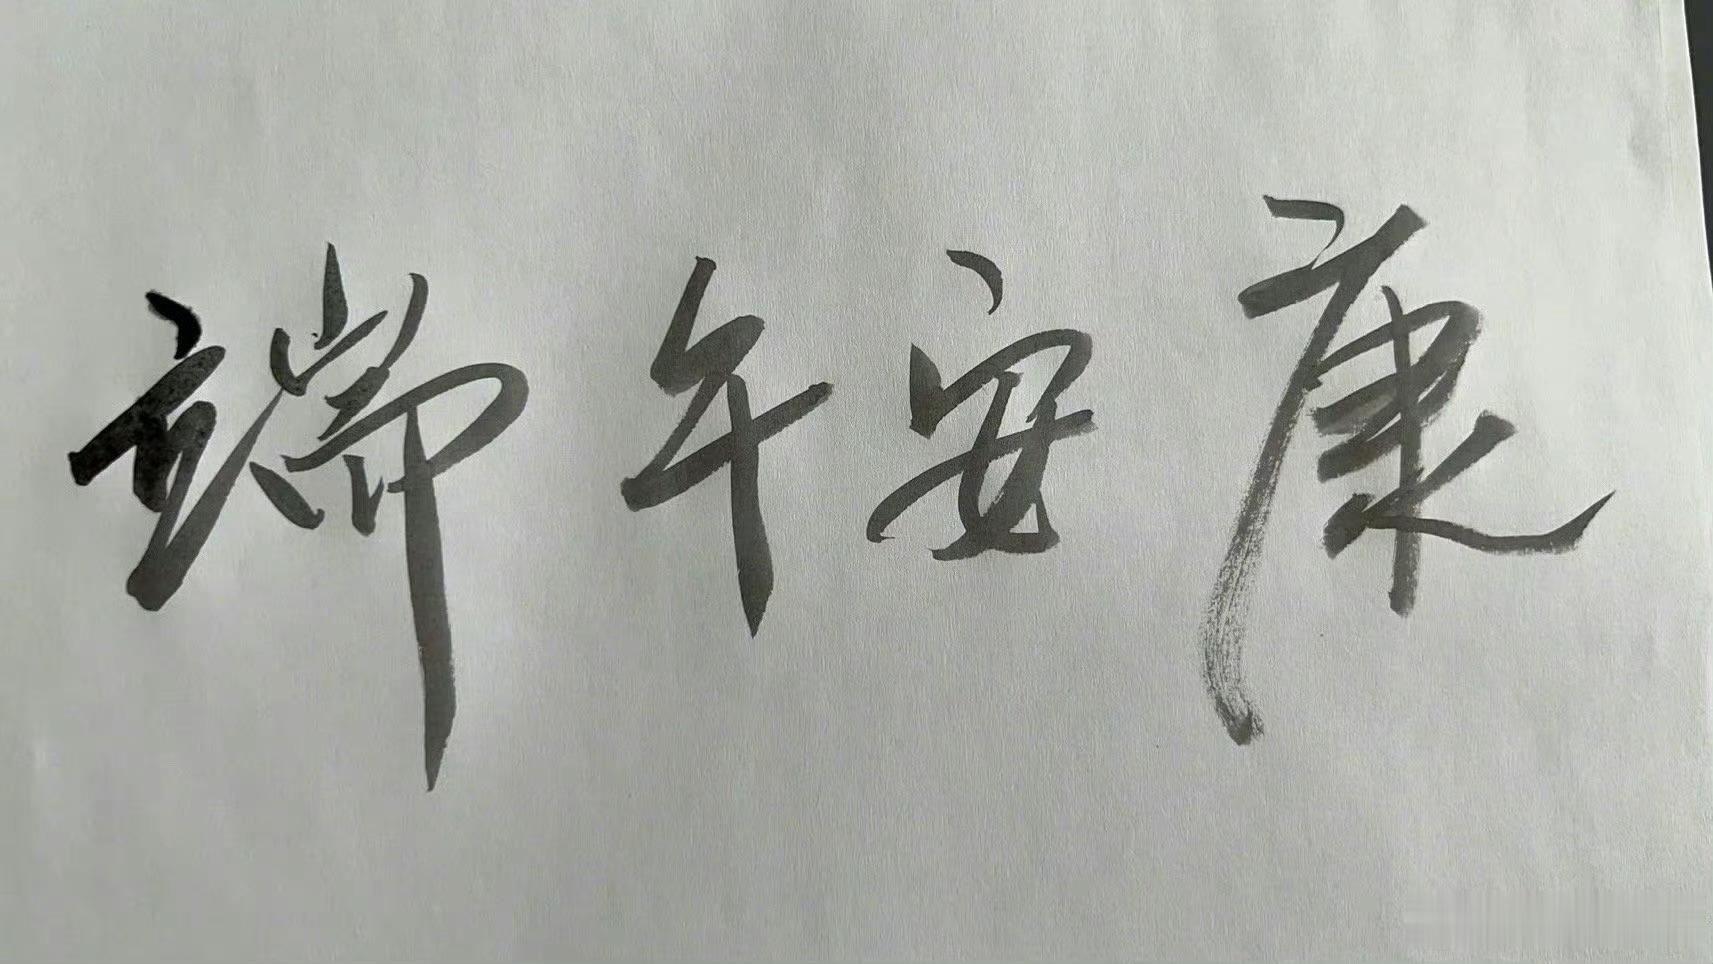 端午安康